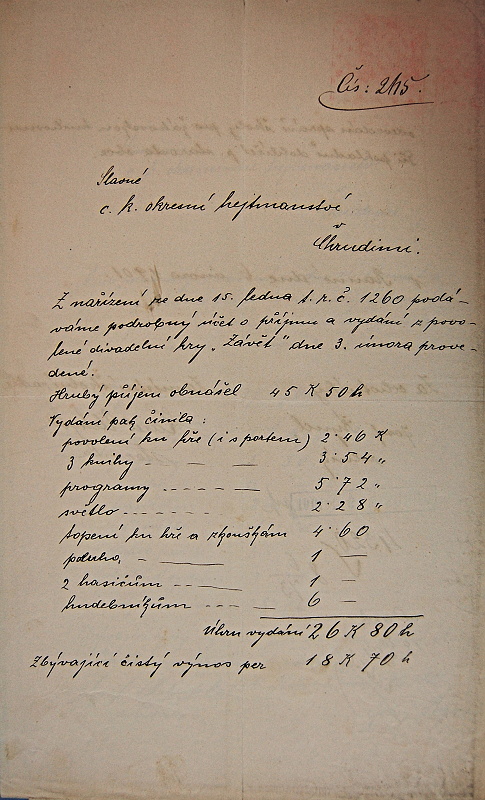 Čís: 2115.
Slavné
c. k. okresní hejtmanství
v
Chrudimi.
Z nařízení ze dne 15. ledna t. r. č. 1260 podá-
váme podrobný účet o příjmu a vydání z povo-
lené divadelní hry „Závěť" dne 3. února prove-
dené.
Hrubý příjem obnášel 45 K 50 h
Vydání pak činila:
povolení ku hře (i s portem) 2·46 K
3 knihy - — — 3·54 „
programy - - - - - - - 5·72 „
světlo - - - - - - - 2·28 „
topení ku hře a zkouškám 4·60
— — 1 —
2 hasičům - - - — — 1 —
hudebníkům - - - — 6 —
Úhrn vydání 26 K 80 h
Zbývající čistý výnos per 18 K 70 h